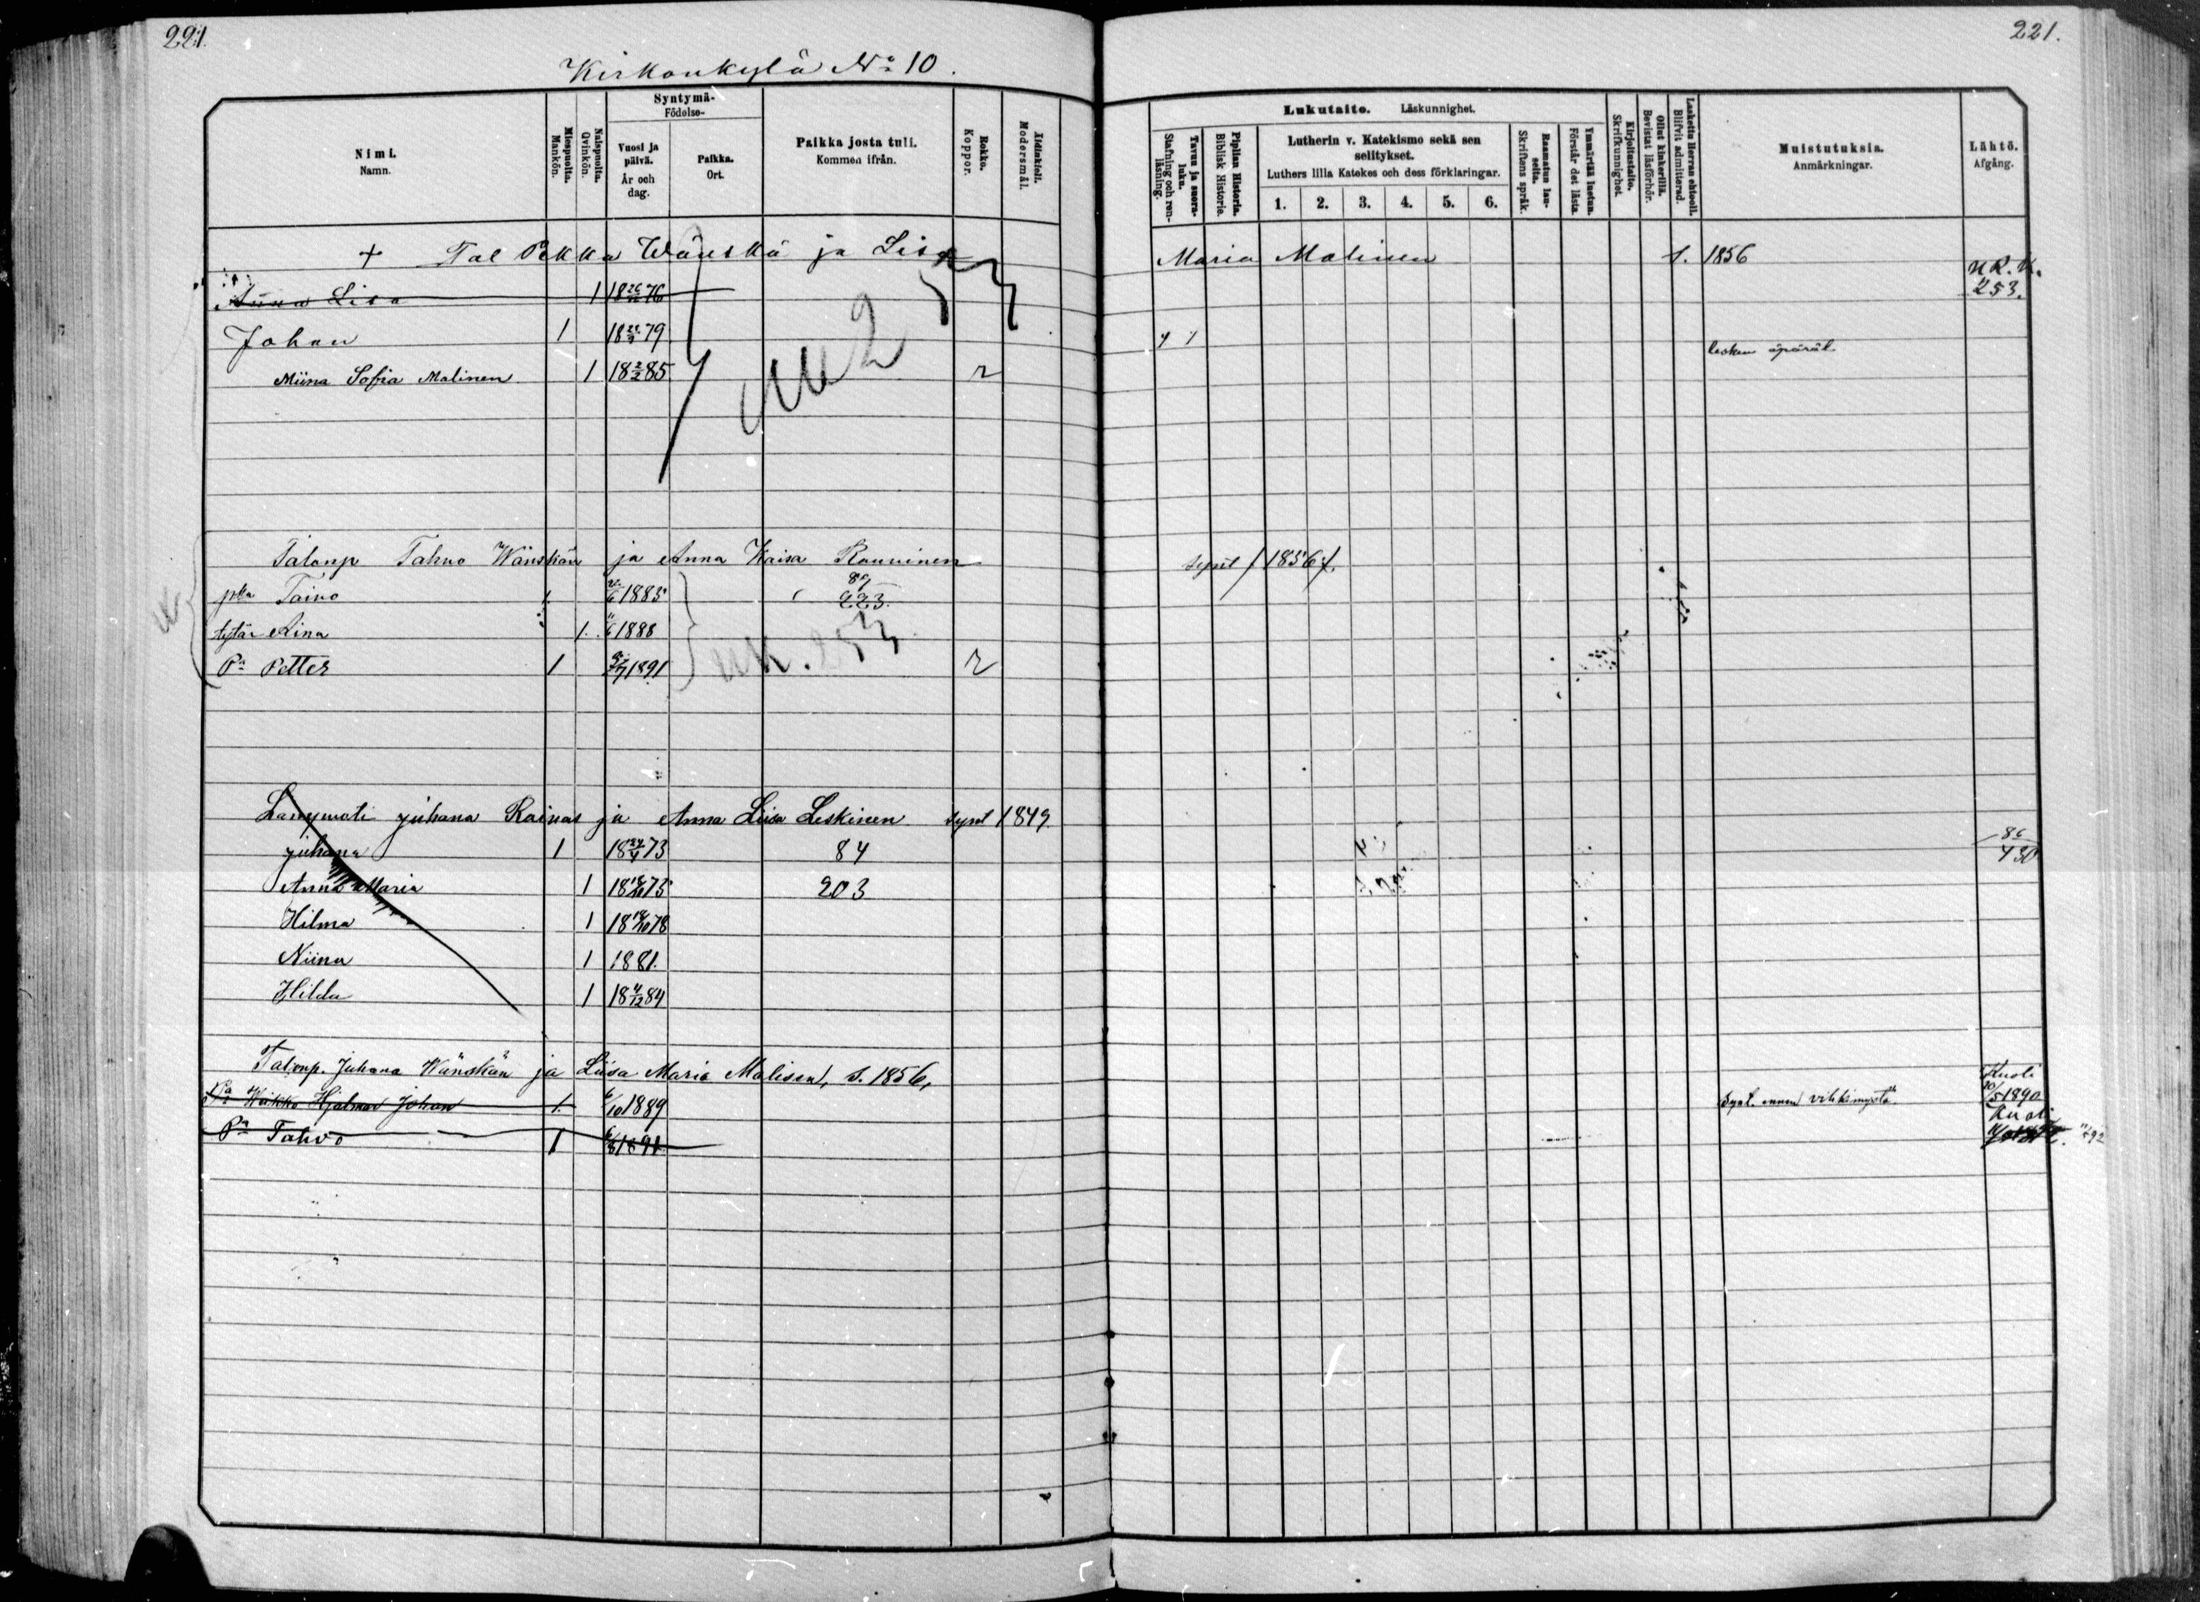 221.
221.
Kirkonkylä No 10.
Nimi. Namn.
Miespuolia. Mankön.
Naispuolia. Qvinkön.
Syntymä- Födelse-
Vuosi ja päivä. År och dag.
Paikka. Ort.
Paikka josta tuli. Kommen ifrån.
Rokko. Koppor.
Äidinkieli. Modersmål.
Lukutaito. Läskunnighet.
Tavuu ja suora-luku. Stafning och ren-läsning.
Piplian Historia. Biblisk Historie.
Lutherin v. Katekismo sekä sen selitykset.
Luthers lilla Katekes och dess förklaringar.
1. 2. 3. 4. 5. 6.
Raamatun lau-seita. Skriftens språk.
Ymmärtää luetun. Förstår det lästa.
Kirjoitustaito. Skrifkunnighet.
Ollut kinkerillä. Bevistat läsförhör.
Laskettu Herran ehtooll. Blifvit admitterad.
Muistutuksia. Anmärkningar.
Lähtö. Afgång.
+ Tal Pekka Wänskä ja Lisa Maria Malinen s. 1856
Anna Lisa 1 18 76 253.
Johan 1 18 79
Miina Sofia Malinen 1 18 2/2 85 r lesken äpäräl.
Talonp Tahvo Wänskän ja Anna Kaisa Rouvinen synt / 1856 /.
Toivo 1 1883 223.
tytär Aina 1. 1888
Pa Petter 1 1891 r
uk. 253
Juhana Rainas ja Anna Liisa Leskinen synt 1849.
Juhana 1 18 73 84 430
Anna Maria 1 18 75 203
Hilma 1 18 78
Niina 1 1881.
Hilda 1 18 4/12 84
Talonp. Juhana Wänskän ja Liisa Maria Malisen, s. 1856,
Hjalmar Johan 1. 6/10 1889 Synt. ennen vihkimystä Kuoli 1890
Pa Tahvo 1 1891 Kuoli